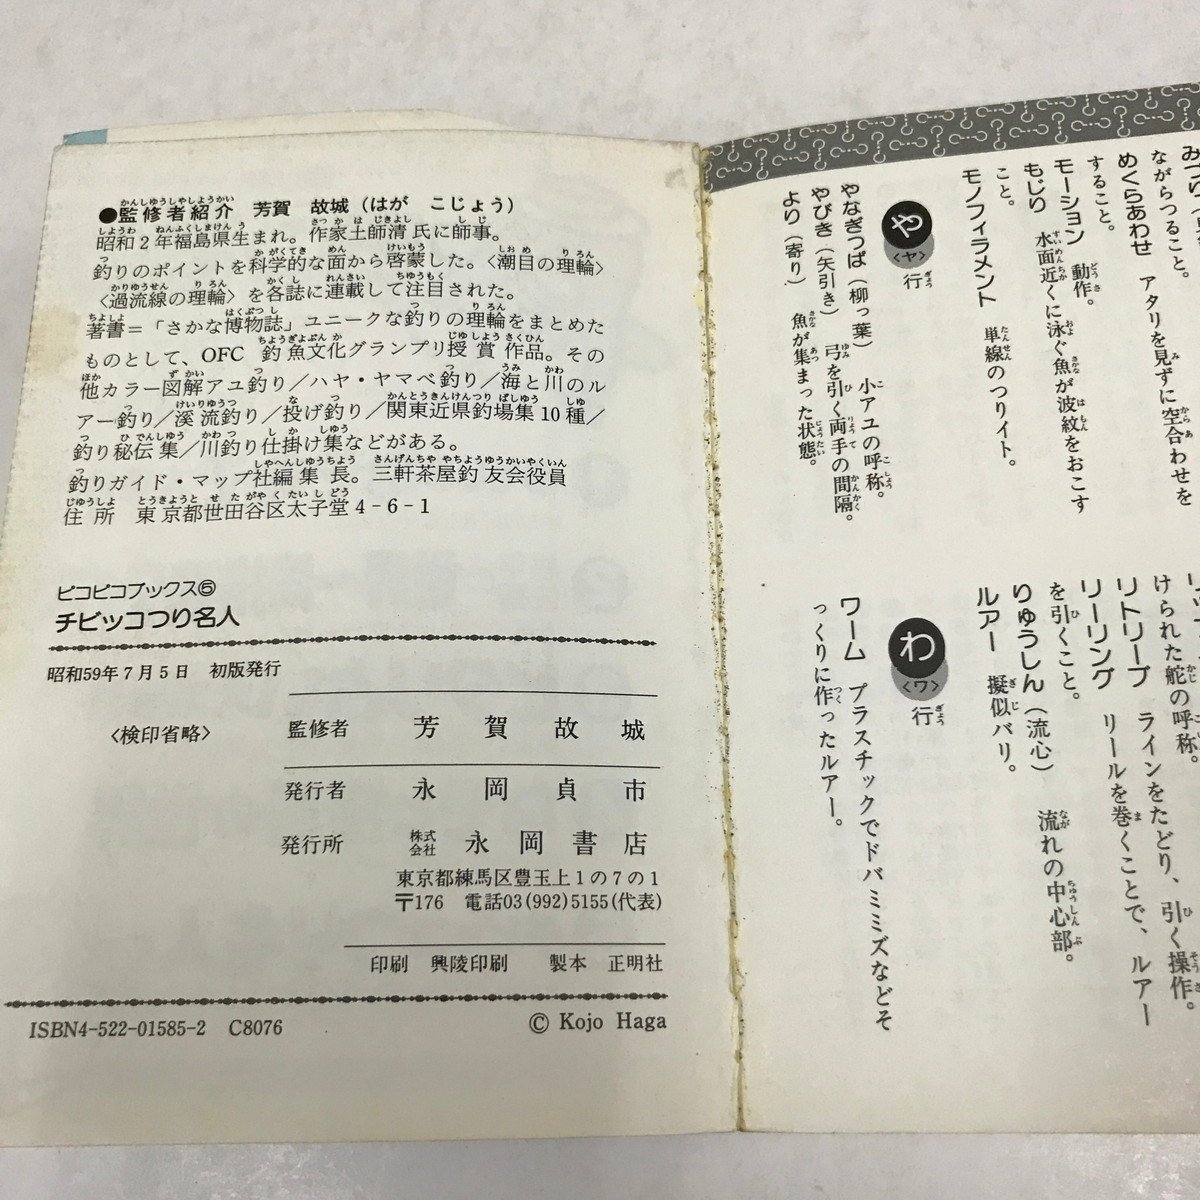 ●監修者紹介　芳賀　故城（はが　こじょう）
昭和2年福島県生まれ。作家土師清氏に師事。
釣りのポイントを科学的な面から啓蒙した。〈潮目の理輪〉
〈過流線の理輪〉を各誌に連載して注目された。
著書＝「さかな博物誌」ユニークな釣りの理輪をまとめた
ものとして、OFC　釣魚文化グランプリ授賞作品。その
他カラー図解アユ釣り／ハヤ・ヤマベ釣り／海と川のル
アー釣り／渓流釣り／投げ釣り／関東近県釣場集10種／
釣り秘伝集／川釣り仕掛け集などがある。
釣りガイド・マップ社編集長。三軒茶屋釣友会役員
住所　東京都世田谷区太子堂4-6-1
ピコピコブックス⑤
チビッコつり名人
昭和59年7月5日　初版発行
〈検印省略〉
監修者　芳賀故城
発行者　永岡貞市
発行所　株式会社　永岡書店
東京都練馬区豊玉上1の7の1
〒176　電話03(992)5155(代表)
印刷　興陵印刷　製本　正明社
ISBN4-522-01585-2　C8076
© Kojo Haga
ながらつること。
めくらあわせ　アタリを見ずに空合わせを
すること。
モーション　動作。
もじり　水面近くに泳ぐ魚が波紋をおこす
こと。
モノフィラメント　単線のつりイト。
や〈ヤ〉行
やなぎっぱ（柳っ葉）　小アユの呼称。
やびき（矢引き）　弓を引く両手の間隔。
より（寄り）　魚が集まった状態。
けられた舵の呼称。
リトリーブ　ラインをたどり、引く操作。
リーリング　リールを巻くことで、ルアー
を引くこと。
りゅうしん（流心）　流れの中心部。
ルアー　擬似バリ。
わ〈ワ〉行
ワーム　プラスチックでドバミミズなどそ
っくりに作ったルアー。